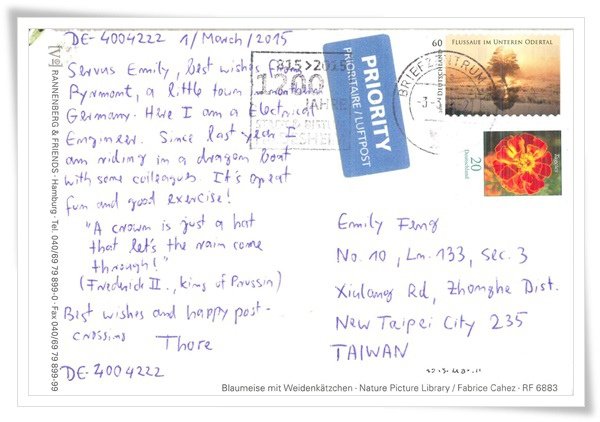 DE-4004222 1/March/2015
Servus Emily, best wishes from
Pyrmont, a little town in
Germany. Here I am a Electrical
Engineer. Since last year I
am riding in a dragon boat
with some colleagues. It's great
fun and good exercise!
"A crown is just a hat
that let's the rain come
through!"
(Frederick II., king of Prussia)
Best wishes and happy post-
crossing
Thore
DE-4004222
RANNENBERG & FRIENDS · Hamburg · Tel. 040/69 79 899-0 · Fax 040/69 79 899-99
(815>2015)
1200
JAHRE
PRIORITY
PRIORITAIRE / LUFTPOST
BRIEFZENTRUM
60
FLUSSAUE IM UNTEREN ODERTAL
20
Deutschland
Emily Feng
No. 10, Ln. 133, Sec. 3
Xiulang Rd, Zhonghe Dist.
New Taipei City 235
TAIWAN
Blaumeise mit Weidenkätzchen · Nature Picture Library / Fabrice Cahez · RF 6883